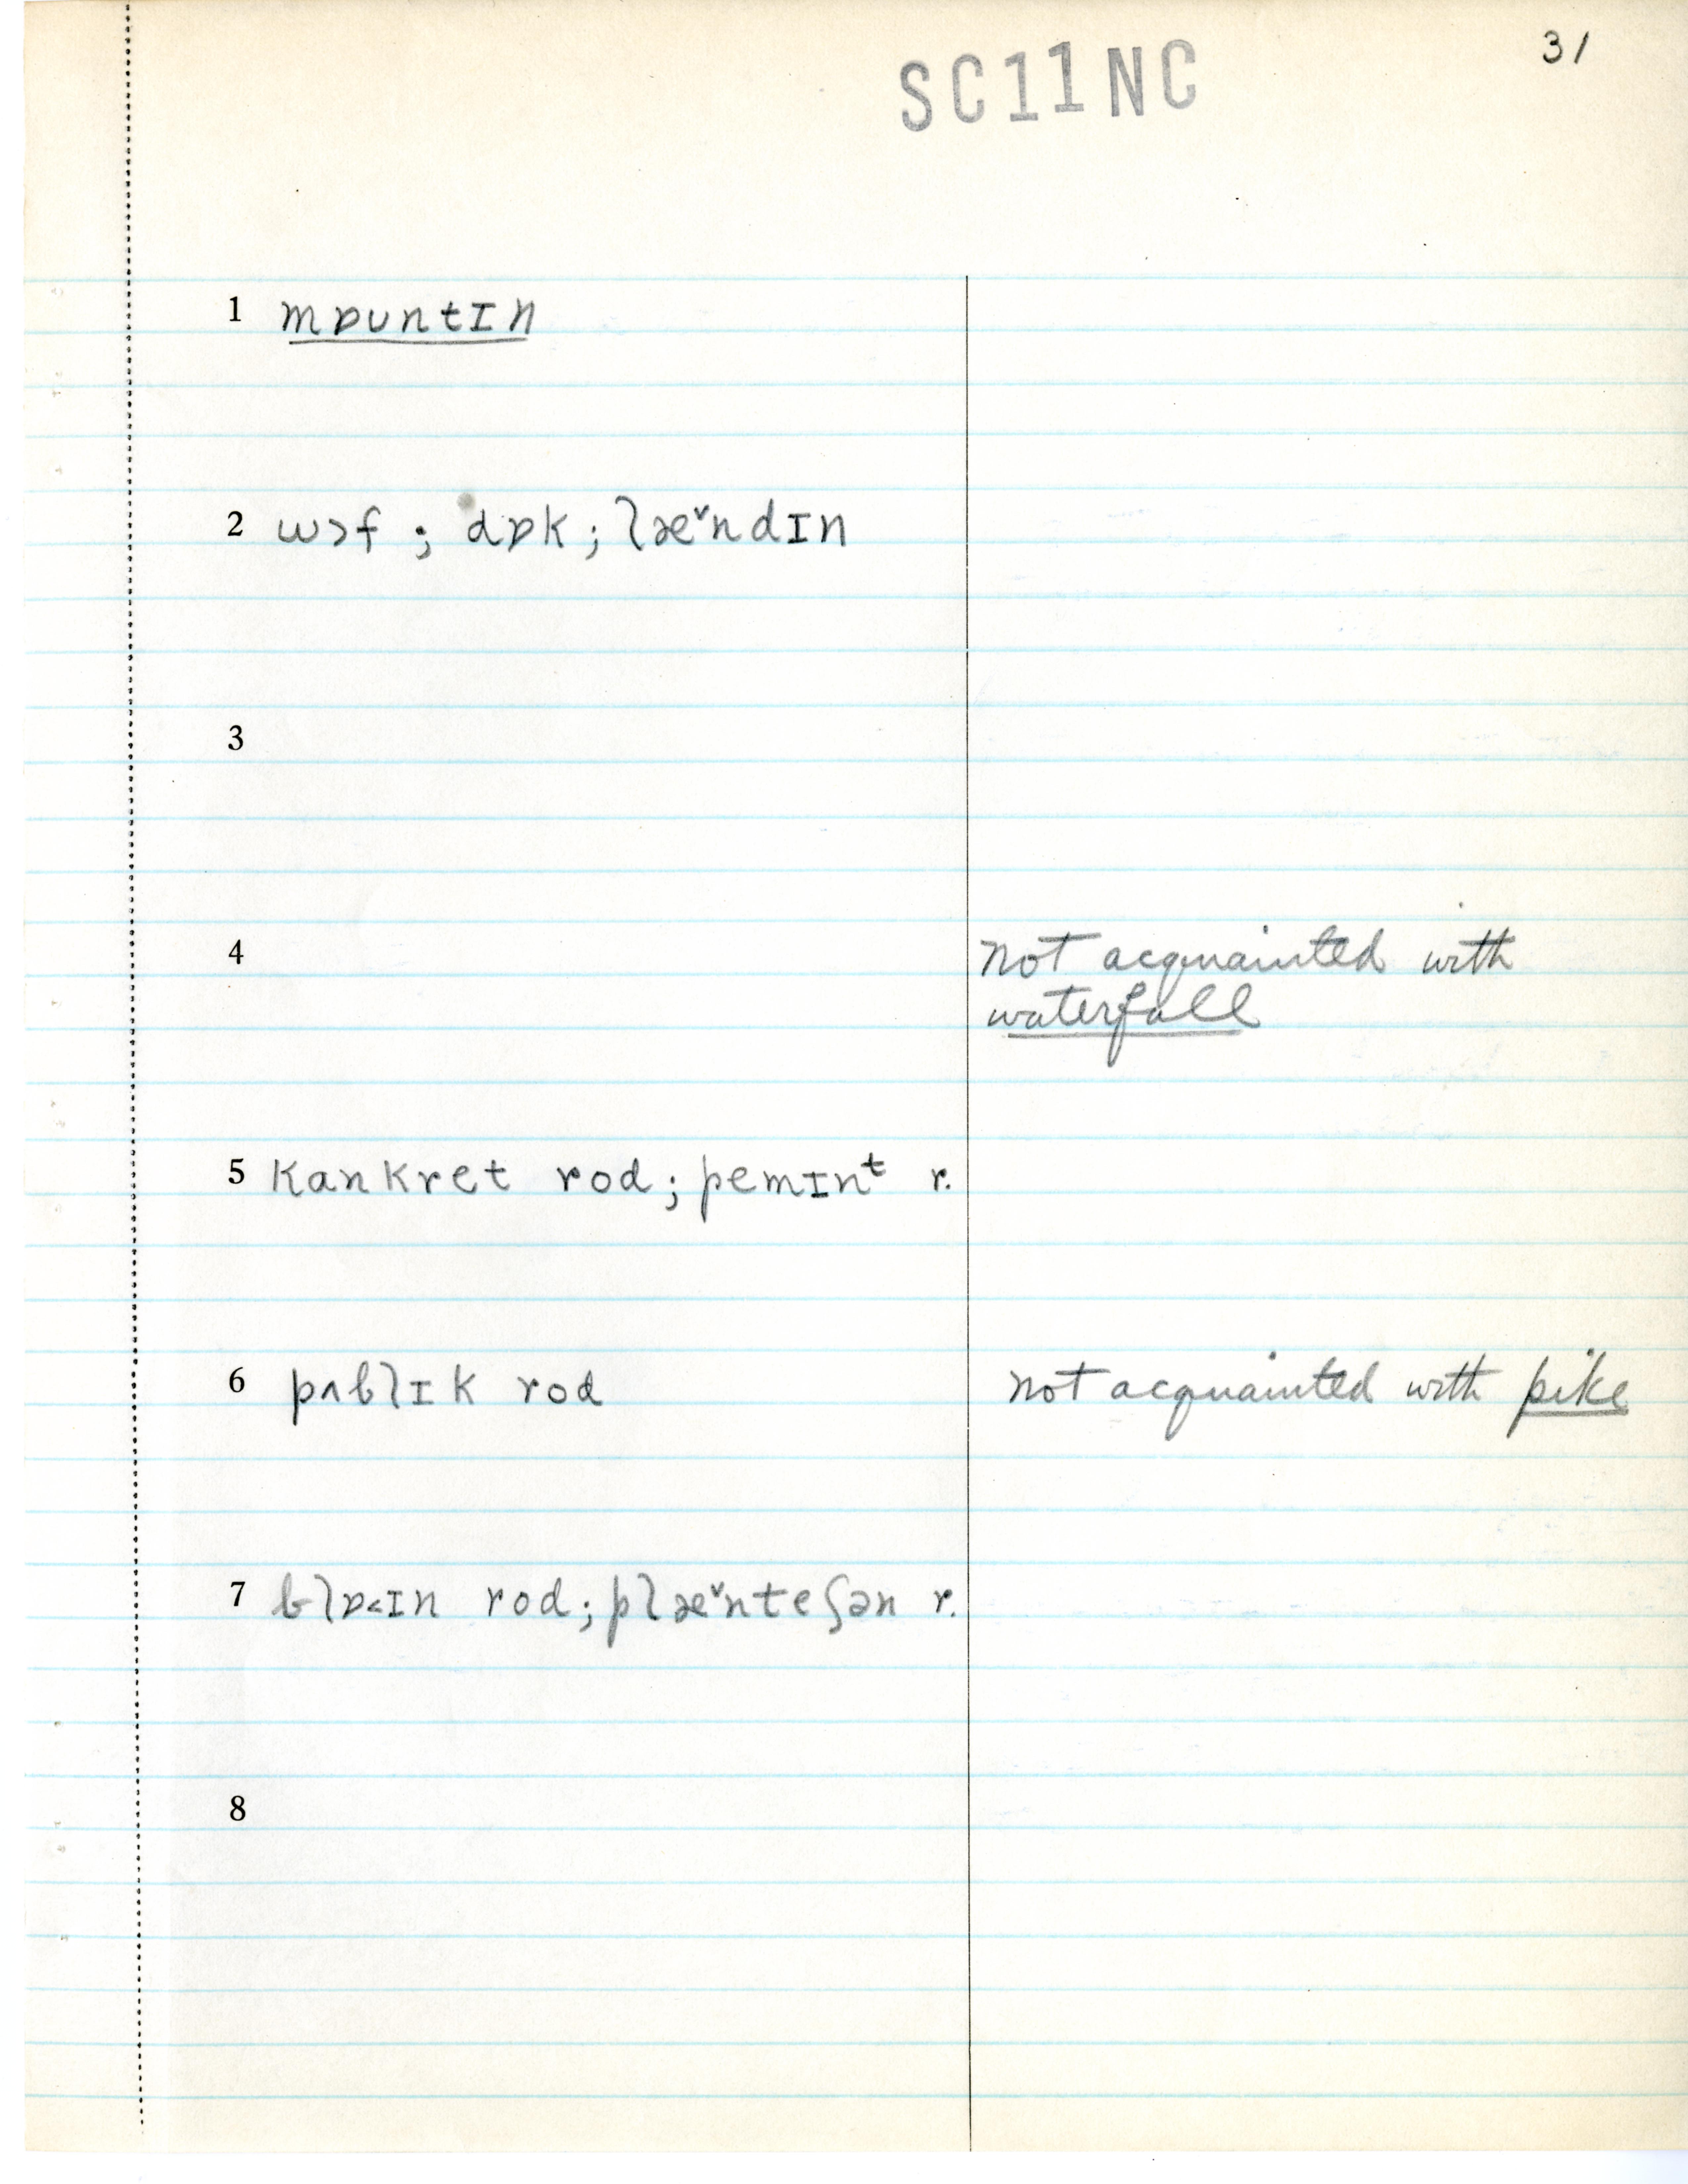 31
SC11NC
1 mɒuntɪn
2 wɔf ; dɒk ; læˇndɪn
3
4 not acquainted with
waterfall
5 kankret rod ; pemɪnᵗ r.
6 pʌblɪk rod not acquainted with pike
7 blɒ˂ɪn rod ; plæˇnteʃən r.
8